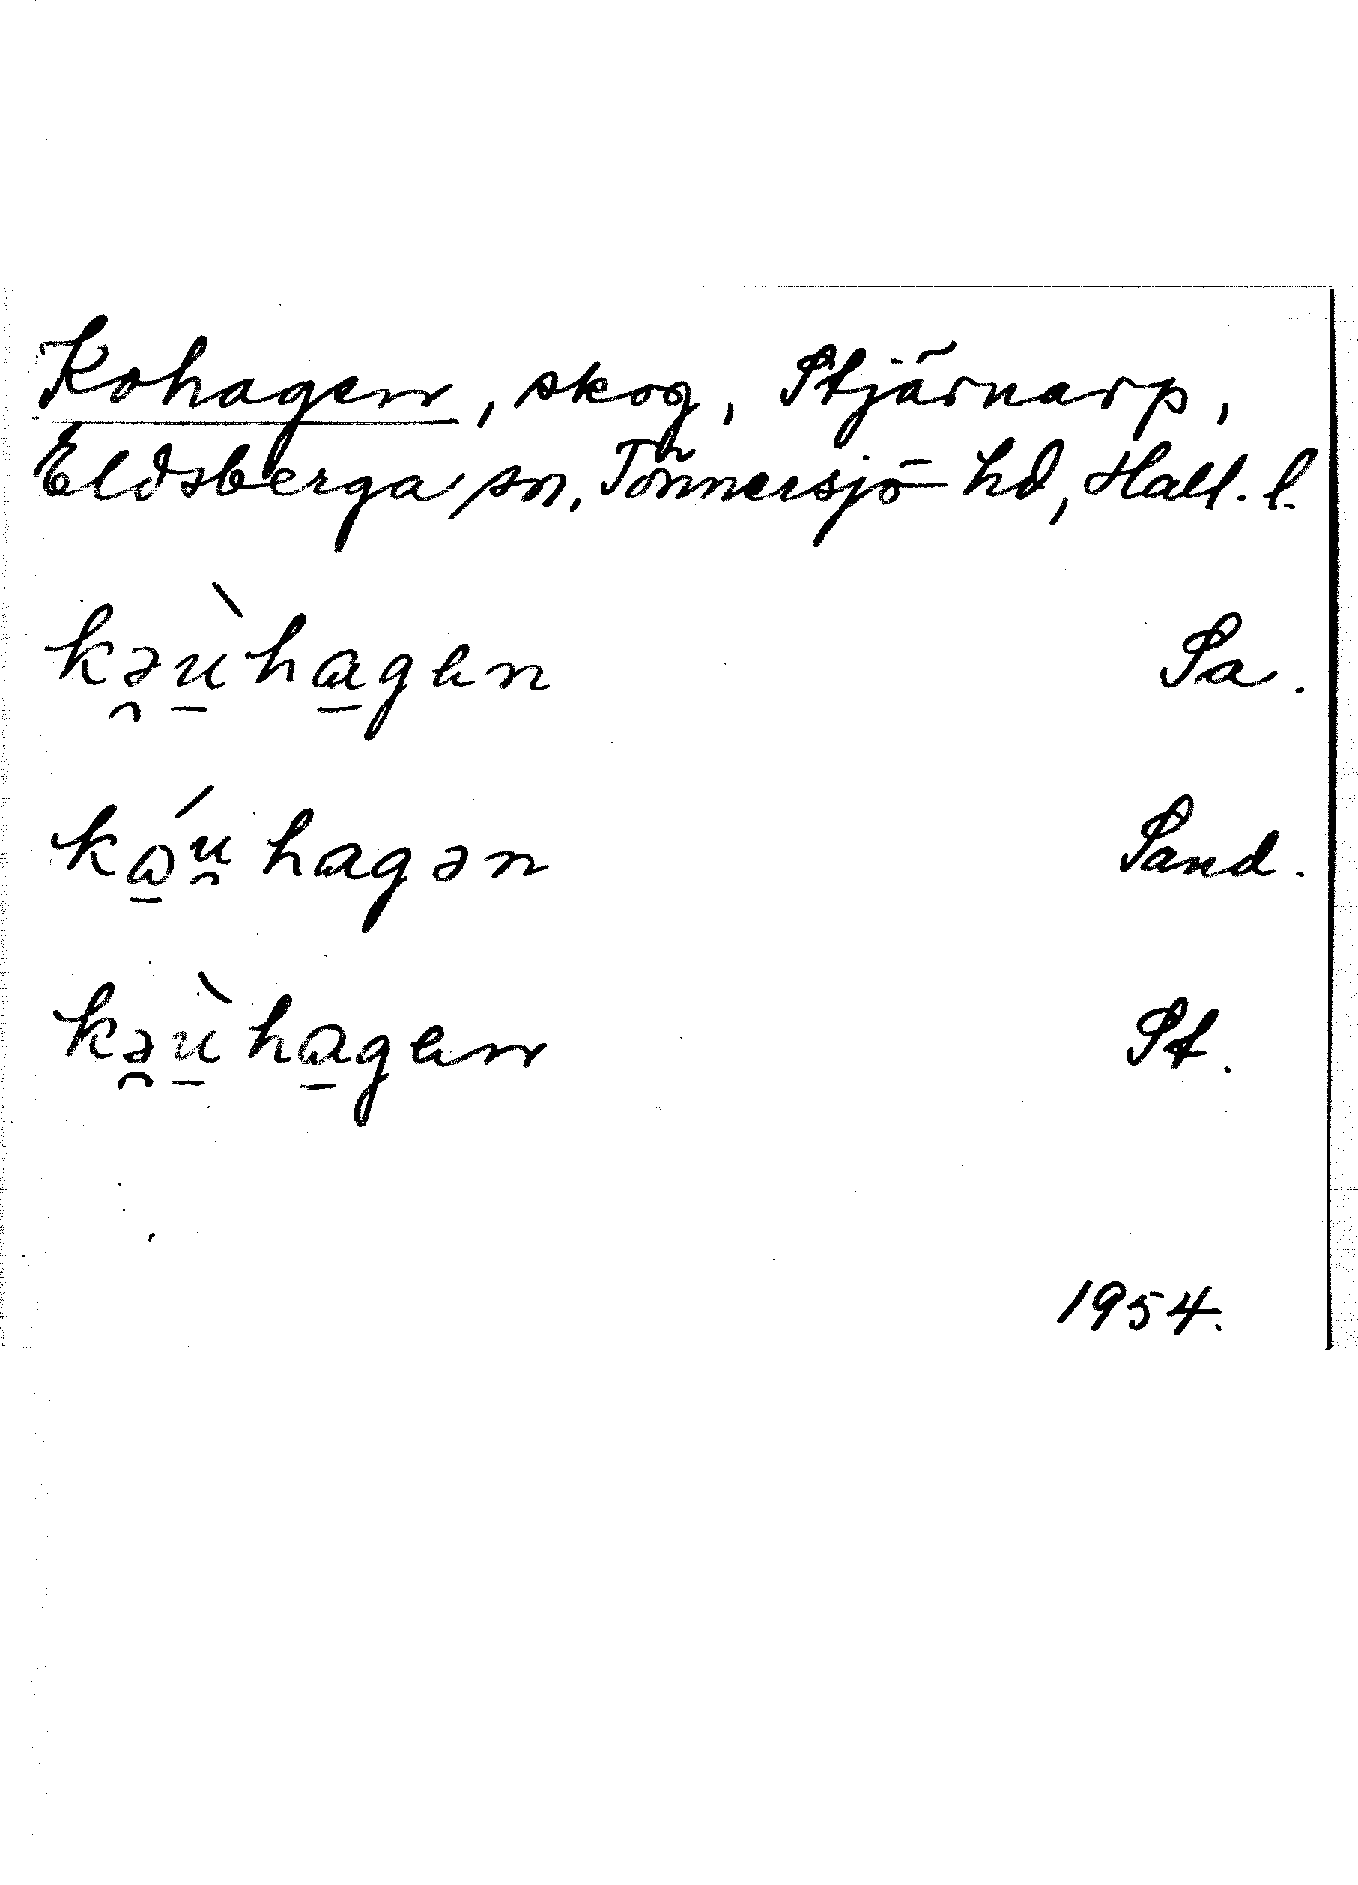 Kohagen, skog, Stjärnarp,
Eldsberga sn, Tönnersjö hd, Hall. l.
kə̯ù̠ha̠gen Sa.
kɷ̠́u̯hagən Sand.
kə̯ù̠ha̠gen St.
1954.